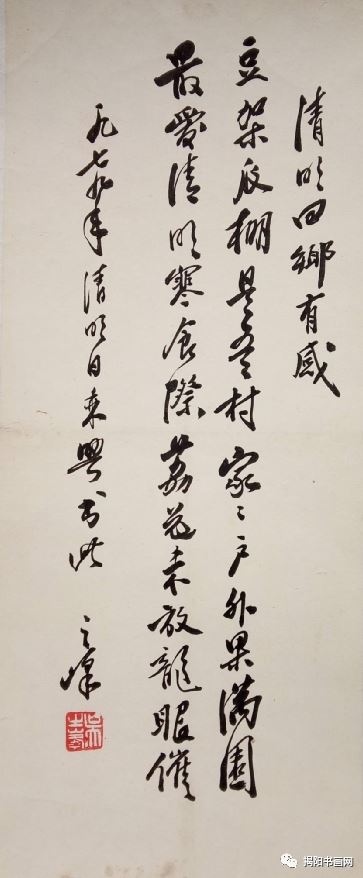 清明回鄉有感
豆架瓜棚是吾村家〻戶外果滿園
最愛清明寒食際荔花未放龍眼催
一九七九年清明日乘興書此 之峰
揭阳书画网